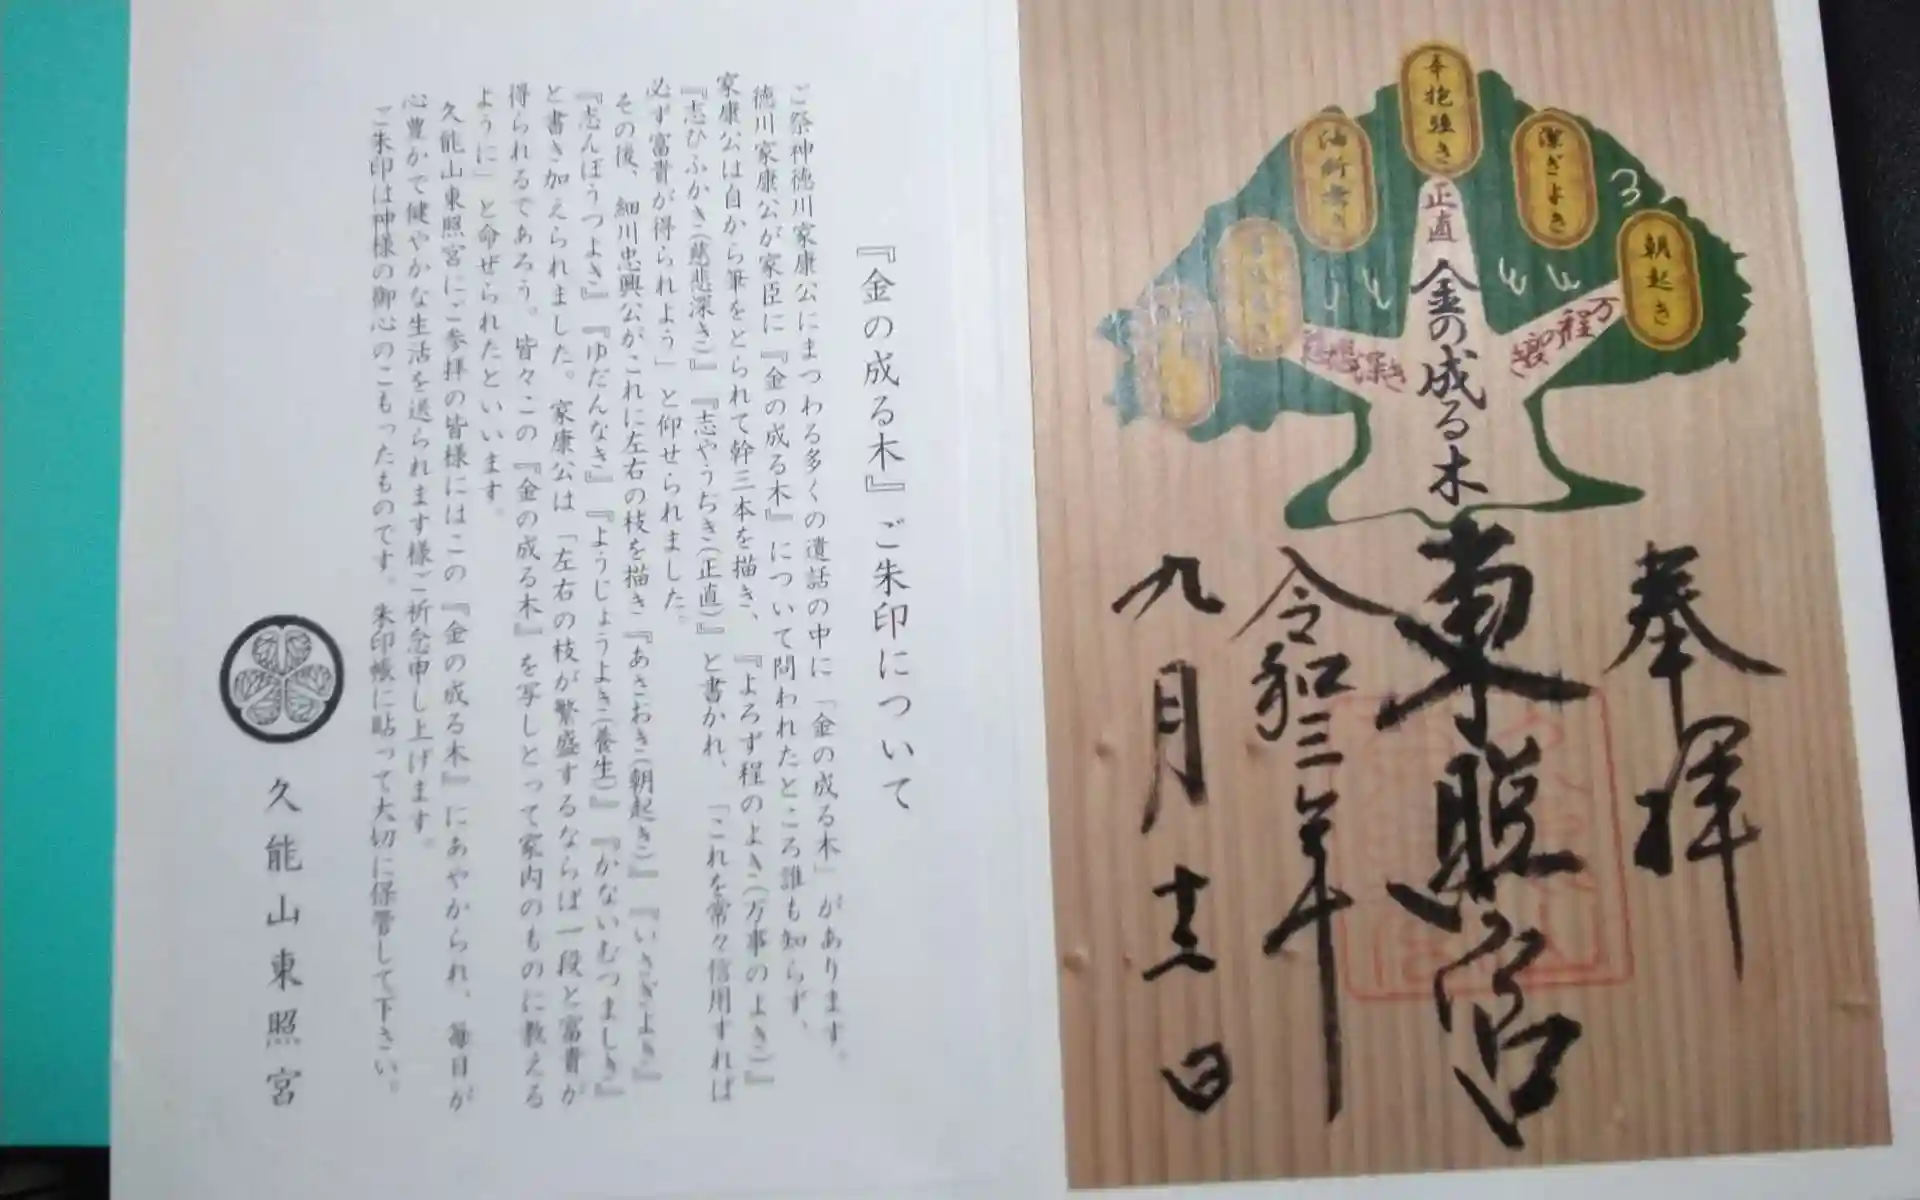 奉拝
東照宮
令和三年
九月十三日
金の成る木
正直
万程の良き
慈悲深き
朝起き
潔ぎよき
辛抱強き
油断無き
『金の成る木』ご朱印について
ご祭神徳川家康公にまつわる多くの遺話の中に「金の成る木」があります。
徳川家康公が家臣に『金の成る木』について問われたところ誰も知らず、
家康公は自から筆をとられて幹三本を描き、『よろず程のよき(万事のよき)』
『志ひふかき(慈悲深き)』『志やうぢき(正直)』と書かれ、「これを常々信用すれば
必ず富貴が得られよう」と仰せられました。
その後、細川忠興公がこれに左右の枝を描き『あさおき(朝起き)』『いさぎよき』
『志んぼうつよき』『ゆだんなき』『ようじょうよき(養生)』『かないむつましき』
と書き加えられました。家康公は「左右の枝が繁盛するならば一段と富貴が
得られるであろう。皆々この『金の成る木』を写しとって家内のものに教える
ように」と命ぜられたといいます。
久能山東照宮にご参拝の皆様にはこの『金の成る木』にあやかられ、毎日が
心豊かで健やかな生活を送られます様ご祈念申し上げます。
ご朱印は神様の御心のこもったものです。朱印帳に貼って大切に保管して下さい。
久能山東照宮